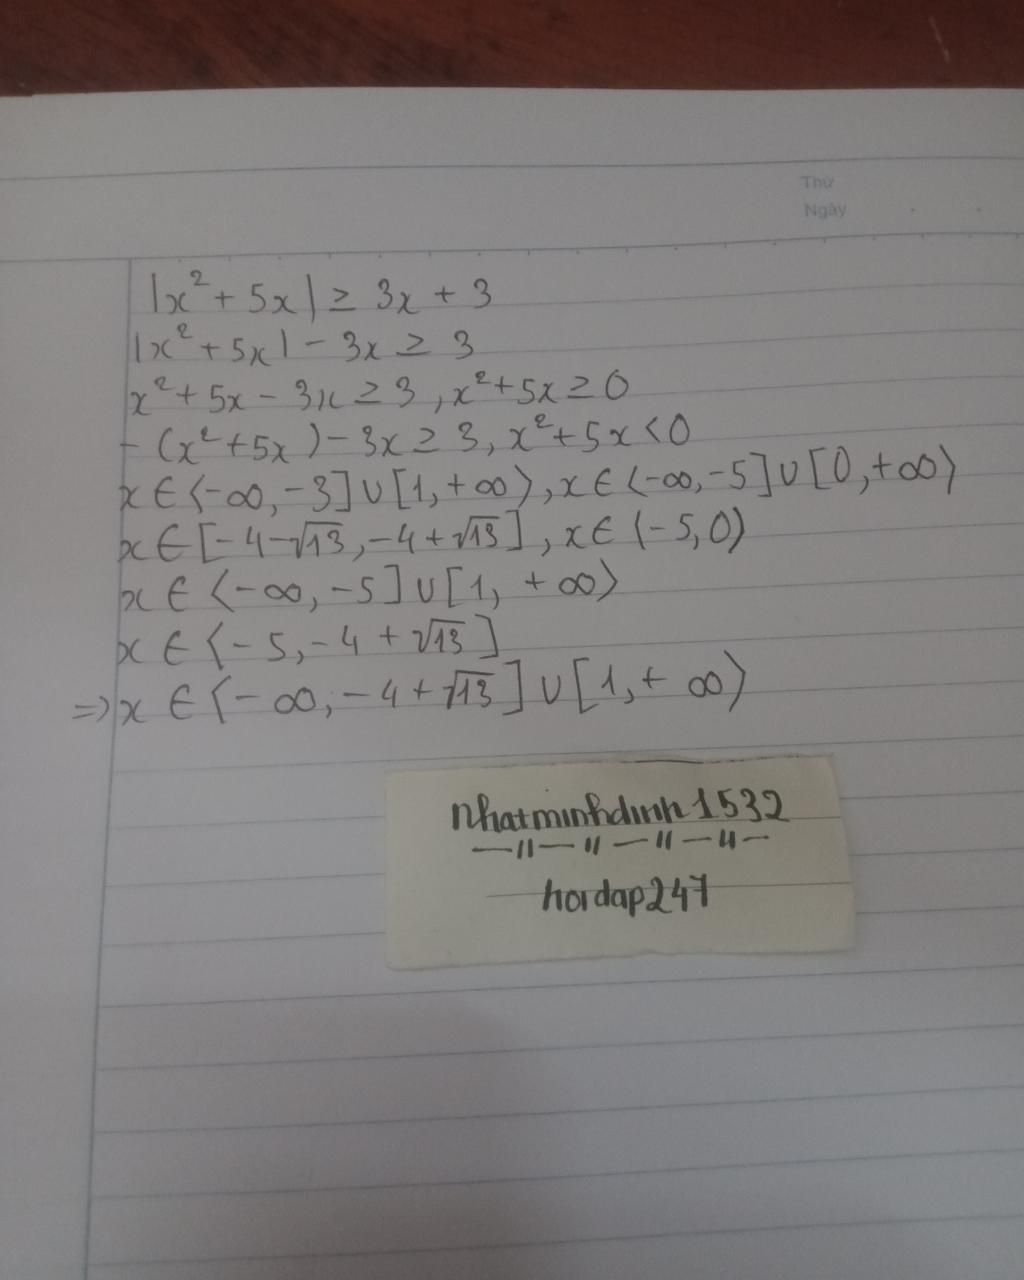 Thứ
Ngày
|x² + 5x| ≥ 3x + 3
|x² + 5x| - 3x ≥ 3
x² + 5x - 3x ≥ 3, x² + 5x ≥ 0
- (x² + 5x) - 3x ≥ 3, x² + 5x < 0
x ∈ ⟨-∞, -3] ∪ [1, +∞⟩, x ∈ ⟨-∞, -5] ∪ [0, +∞⟩
x ∈ [-4-√13, -4+√13], x ∈ (-5, 0)
x ∈ ⟨-∞, -5] ∪ [1, +∞⟩
x ∈ ⟨-5, -4 + √13]
=> x ∈ ⟨-∞, -4 + √13] ∪ [1, + ∞⟩
nhatminhdinh1532
—॥—॥—॥—॥—
hoidap247